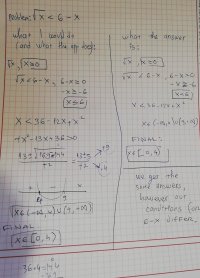 Problem: √x < 6 - x
what I would do
(and what the app does):
√x , x≥0
√x < 6-x, 6-x≥0
-x≥-6
x≤6
x < 36-12x+x²
+x²-13x+36>0
+2
- +
4 9
x∈(-∞,4)∪(9,+∞)
FINAL:
x∈[0,4)
what the answer
is:
√x , x≥0
√x < 6-x, 6-x>0
-x>-6
x<6
x < 36-12x+x²
x∈(-∞,4)∪(9,+∞)
FINAL:
x∈[0,4)
we got the
same answers,
however our
conditions for
6-x differ.